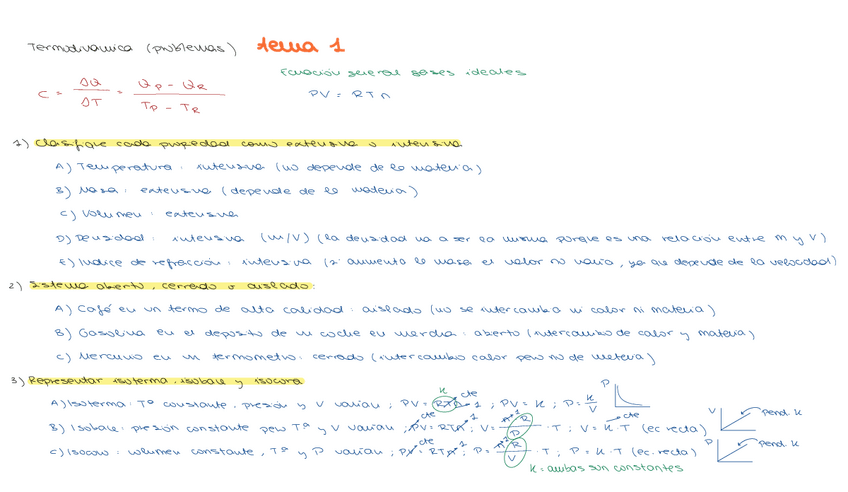 Termodinámica (problemas) tema 1
Ecuación general gases ideales
C = ΔQ / ΔT = Q_P - Q_R / T_P - T_R
PV = RTn
1) Clasifique cada propiedad como extensiva o intensiva
A) Temperatura: intensiva (no depende de la materia)
B) Masa: extensiva (depende de la materia)
C) Volumen: extensiva
D) Densidad: intensiva (m/V) (la densidad va a ser la misma porque es una relación entre m y V)
E) Índice de refracción: intensiva (si aumenta la masa el valor no varía, ya que depende de la velocidad)
2) Sistema abierto, cerrado o aislado:
A) Café en un termo de alta calidad: aislado (no se intercambia ni calor ni materia)
B) Gasolina en el depósito de un coche en marcha: abierto (intercambio de calor y materia)
C) Mercurio en un termómetro: cerrado (intercambio calor pero no de materia)
3) Representar isoterma, isobara y isocora
A) Isoterma: Tª constante, presión y V varían; PV = RTn; PV = K; P = K/V
K cte 1 P
B) Isobara: presión constante pero Tª y V varían; PV = RTn; V = n R / P · T; V = K · T (ec. recta)
cte 1 cte V pend. K
C) Isocora: volumen constante, Tª y P varían; PV = RTn; P = n R / V · T; P = K · T (ec. recta)
cte 1 P pend. K
K = ambas son constantes